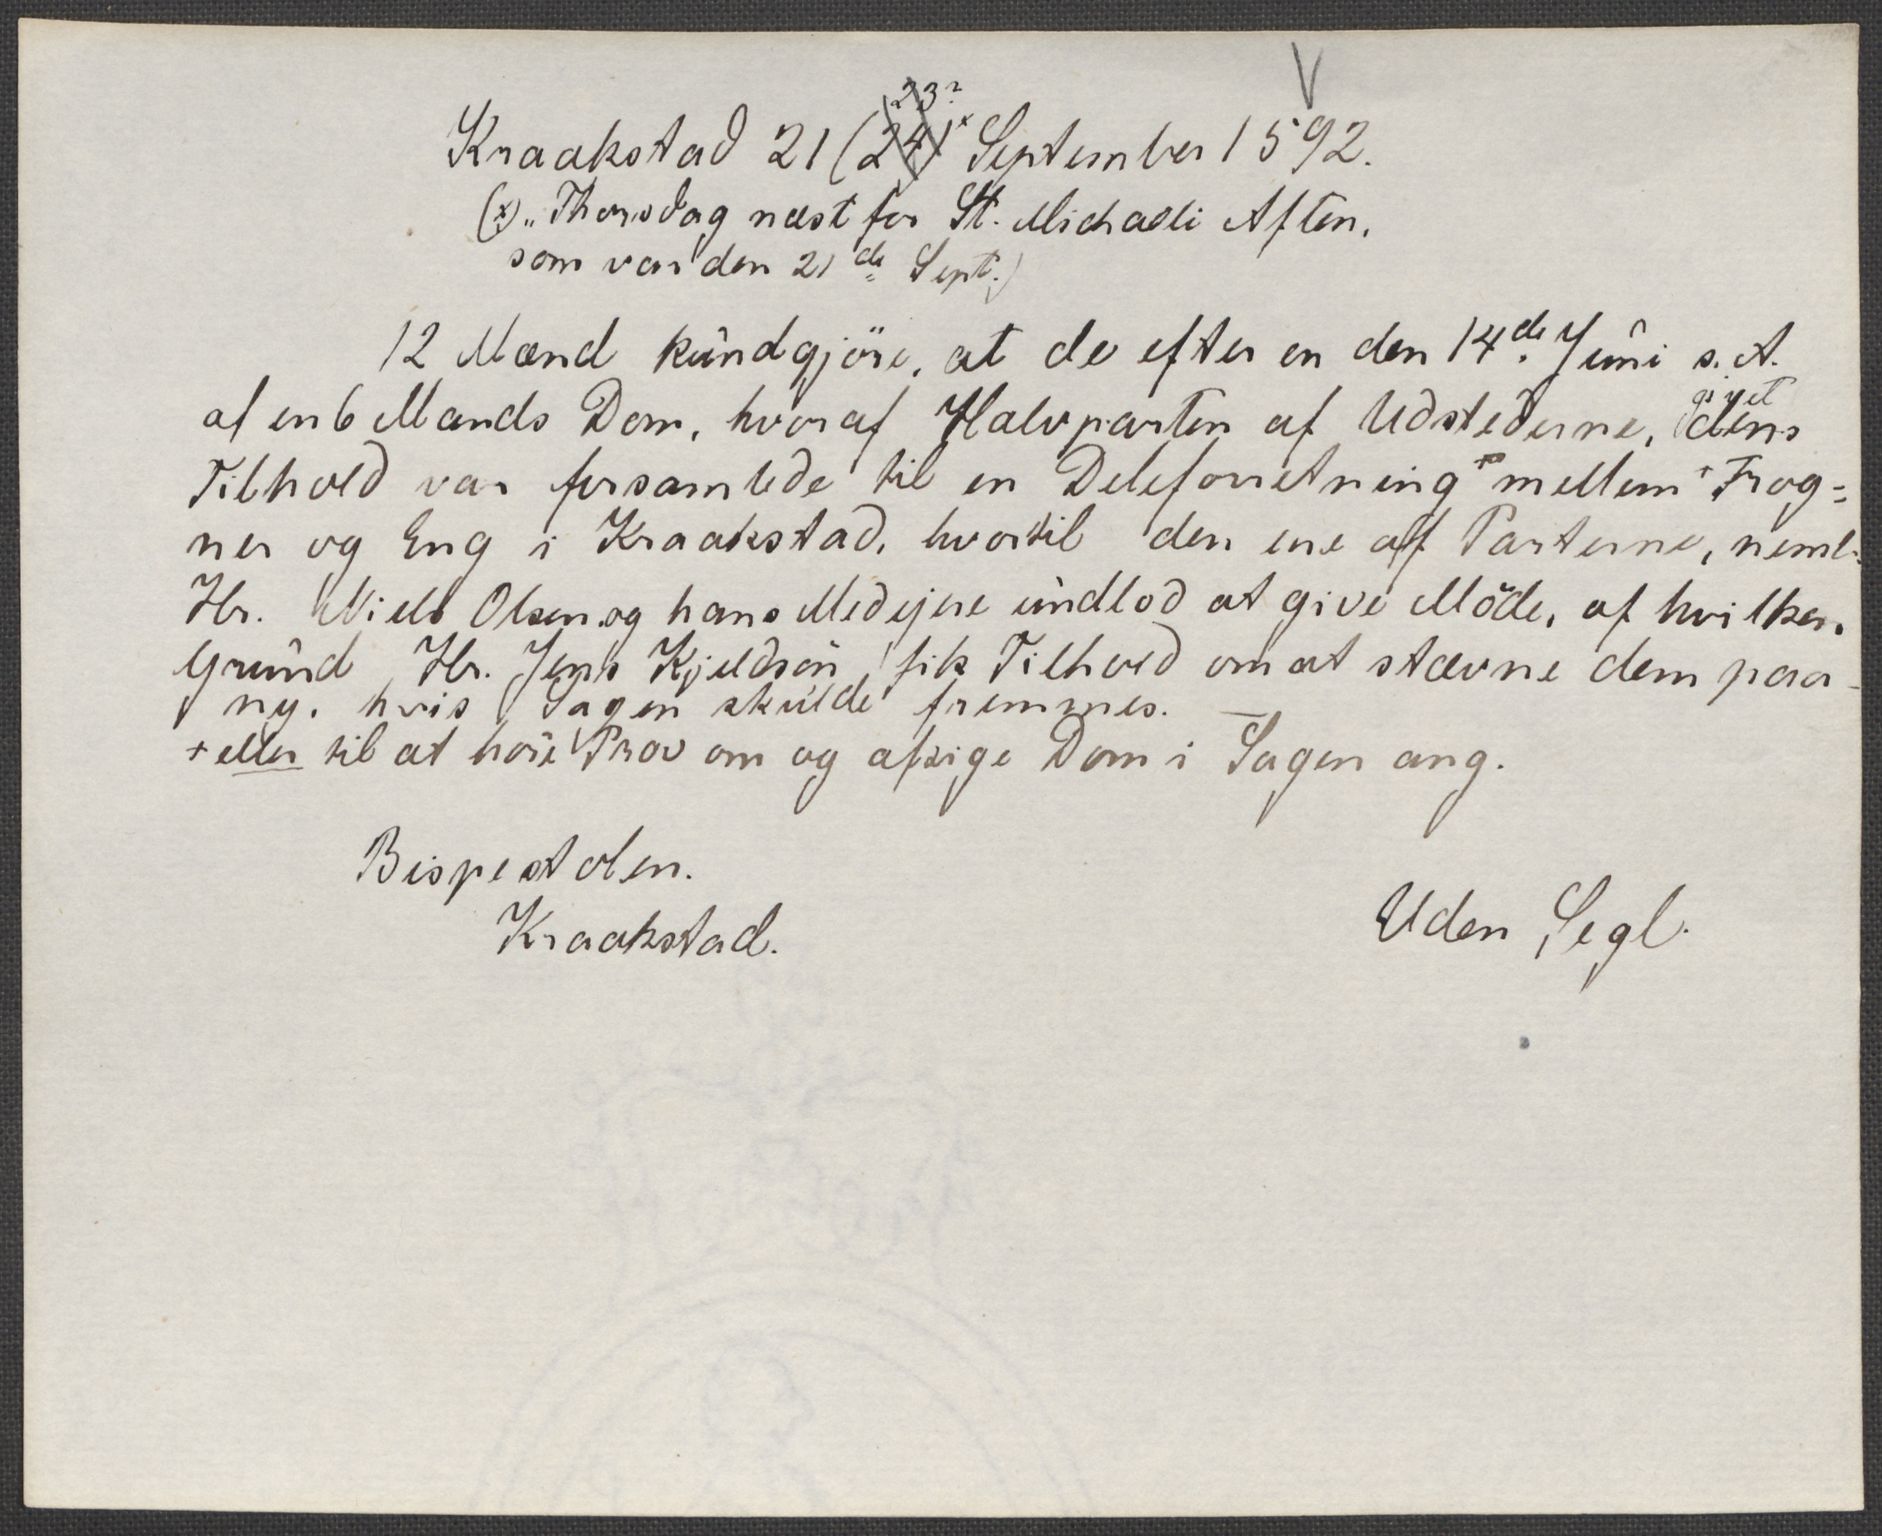 V
23?
Kraakstad 21 (24)x September 1592.
(x) „Thorsdag næst for St. Michaeli Aften,
som var den 21de Sept.)
12 Mænd kundgjöre, at de efter en den 14de Juni s. A.
af en 6 Mands Dom, hvoraf Halvparten af Udstederne, givet
dens
Tilhold var forsamlede til en Deleforretning + mellem + Frog=
ner og Eng i Kraakstad, hvortil den ene af Parterne, neml.
Hr. Niels Olsen og hans Medejere undlod at give Möde, af hvilken
Grund Hr. Jens Kjeldsön fik Tilhold om at stævne dem paa-
ny, hvis Sagen skulde fremmes. —
+ eller til at höre Prov om og afsige Dom i Sagen ang.
Bispestolen.
Kraakstad.
Uden Segl.